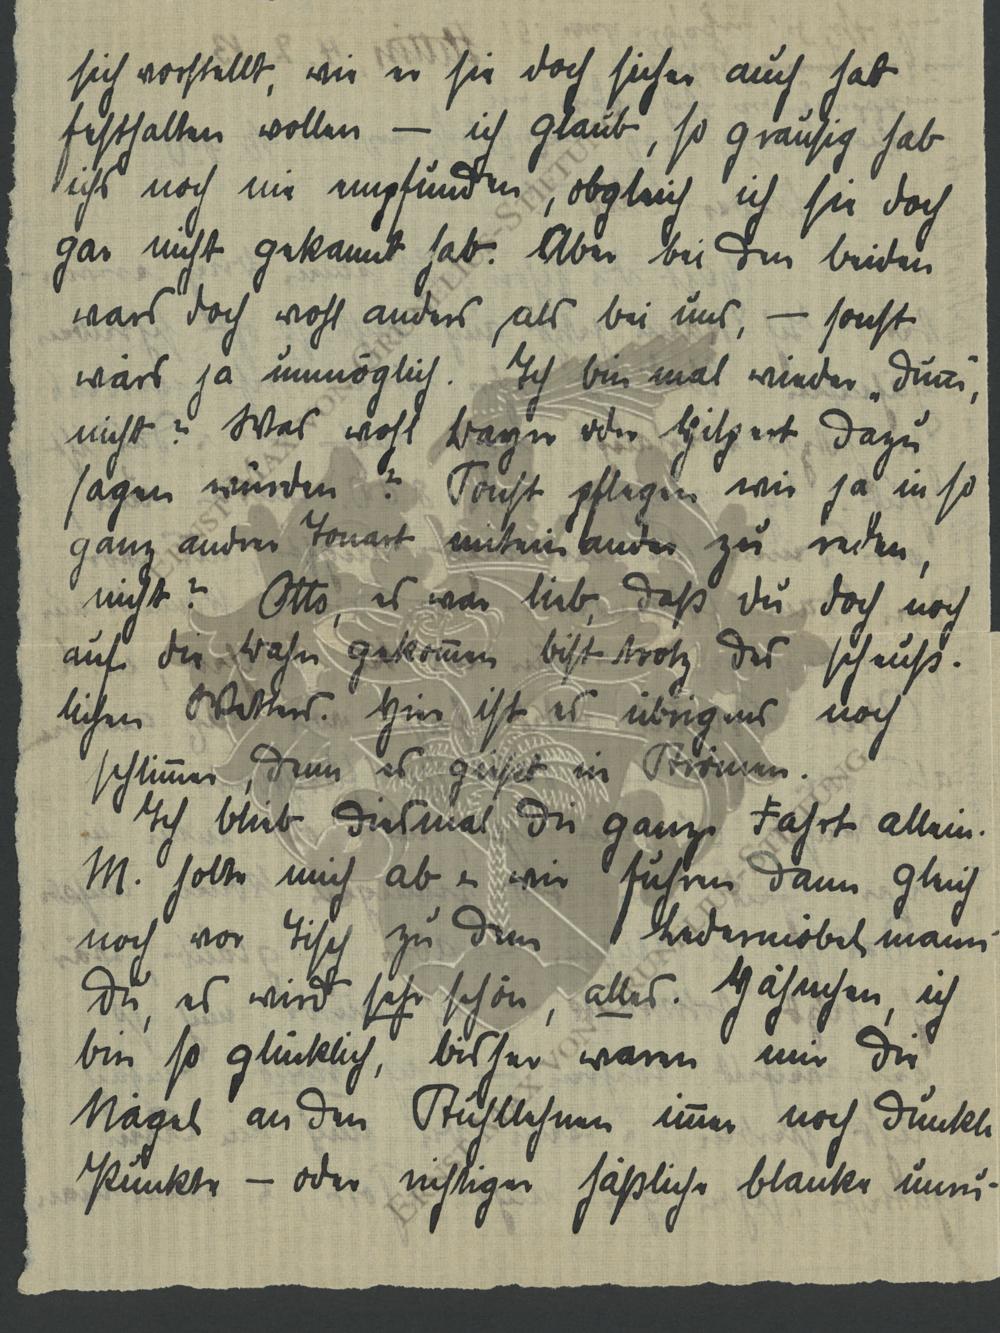 sich vorstellt, wie er sie doch sicher auch hat
festhalten wollen — ich glaub, so grausig hab
ichs noch nie empfunden, obgleich ich sie doch
gar nicht gekannt hab. Aber bei den beiden
wars doch wohl anders als bei uns, — sonst
wärs ja unmöglich. Ich bin mal wieder „dum̅",
nicht? Was wohl Bayer oder Hilpert dazu
sagen würden? Sonst pflegen wir ja in so
ganz andrer Tonart miteinander zu reden,
nicht? Otto, es war lieb, daß du doch noch
auf die Bahn gekom̅en bist trotz des scheuß-
lichen Wetters. Hier ist es übrigens noch
schlim̅er, denn es gießt in Strömen.
Ich blieb diesmal die ganze Fahrt allein.
M. holte mich ab u wir fuhren dann gleich
noch vor Tisch zu dem Ledermöbelmann.
Du, es wird sehr schön, alles. Hähnchen, ich
bin so glücklich, bisher waren mir die
Nägel an den Stuhllehnen im̅er noch dunkle
Punkte — oder richtiger häßliche blanke unru-
ERNST MAX VON GRUNELIUS-STIFTUNG
ERNST MAX VON GRUNELIUS-STIFTUNG